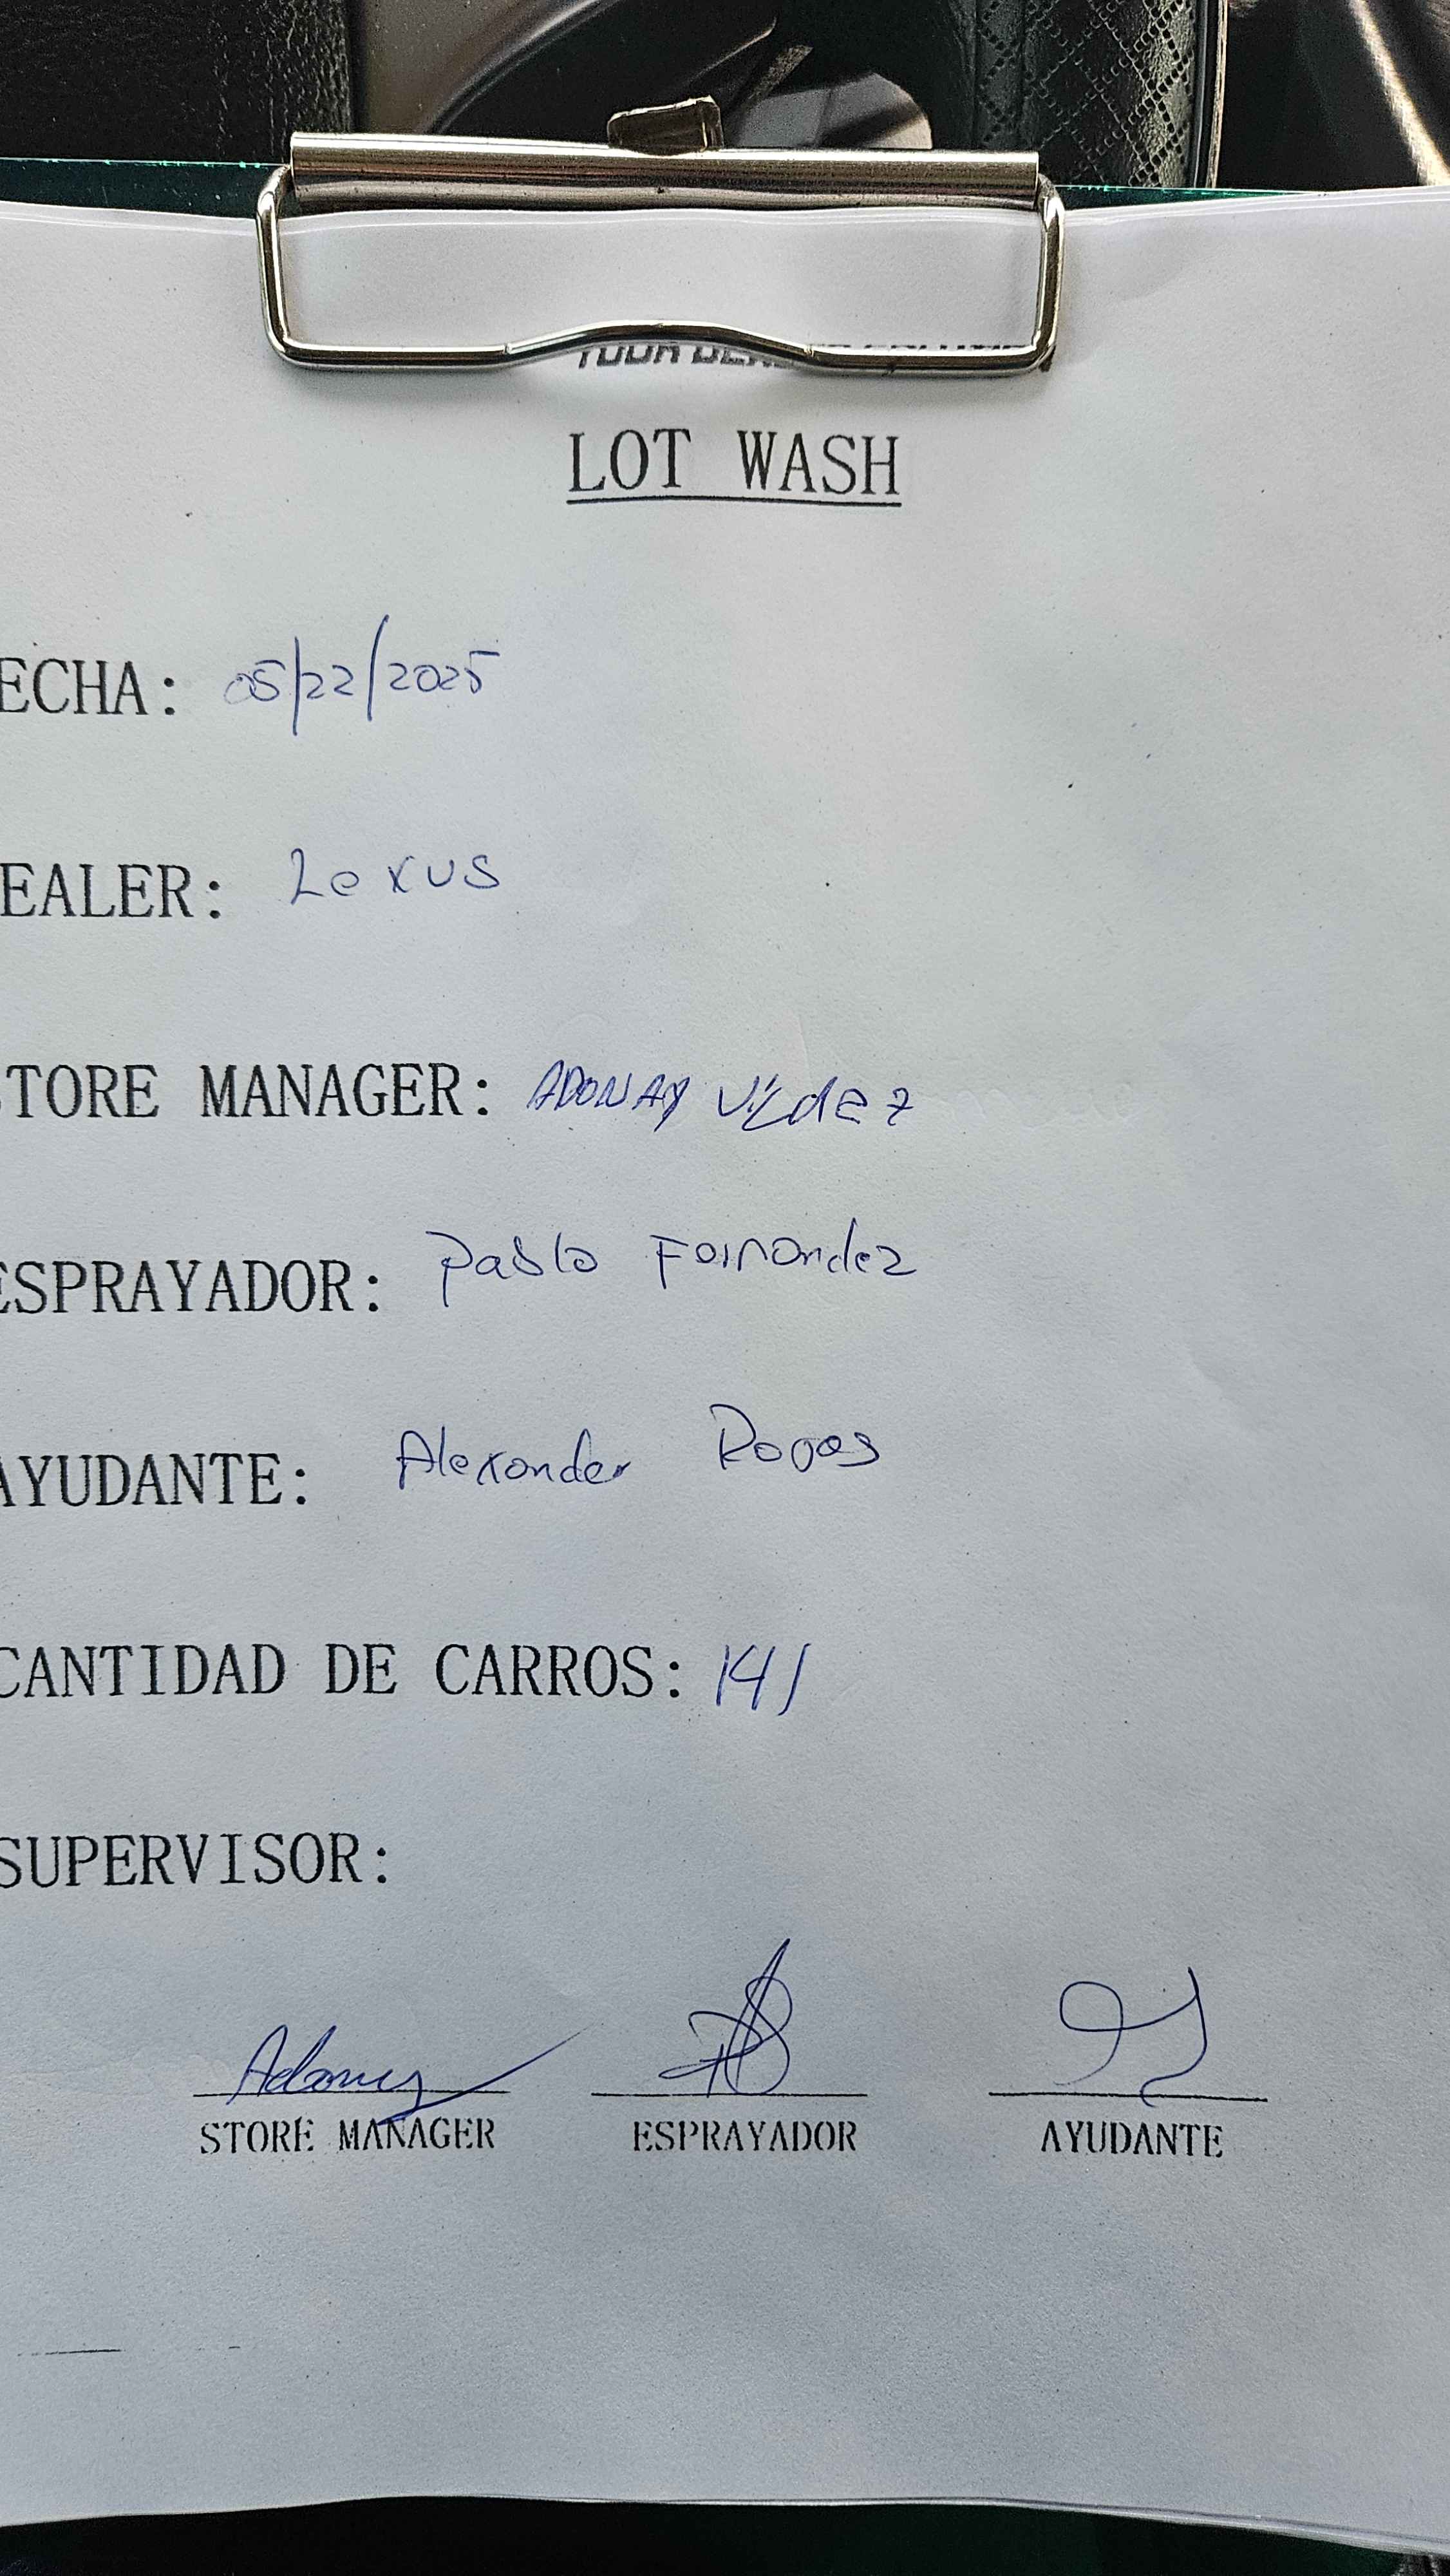 LOT WASH
ECHA: 05/22/2025
EALER: Lexus
STORE MANAGER: ADONAY
ESPRAYADOR: Pablo Fernandez
AYUDANTE: Alexander Rojas
CANTIDAD DE CARROS: 141
SUPERVISOR:
Adonay
STORE MANAGER ESPRAYADOR AYUDANTE